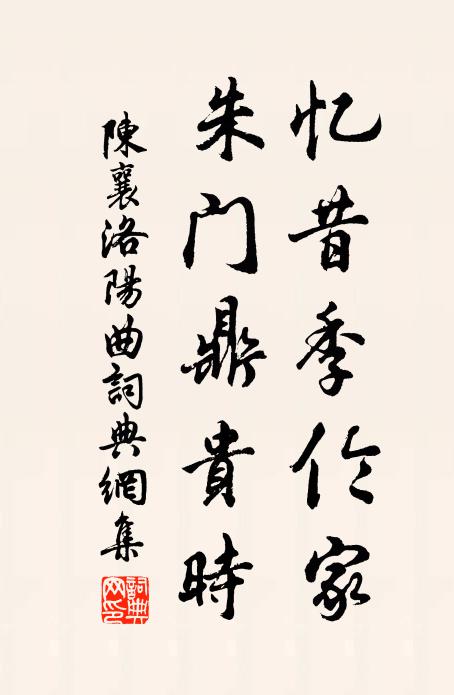 忆昔季伦家
朱门鼎貴時
陳襄洛陽曲詞典網集
詞典网印